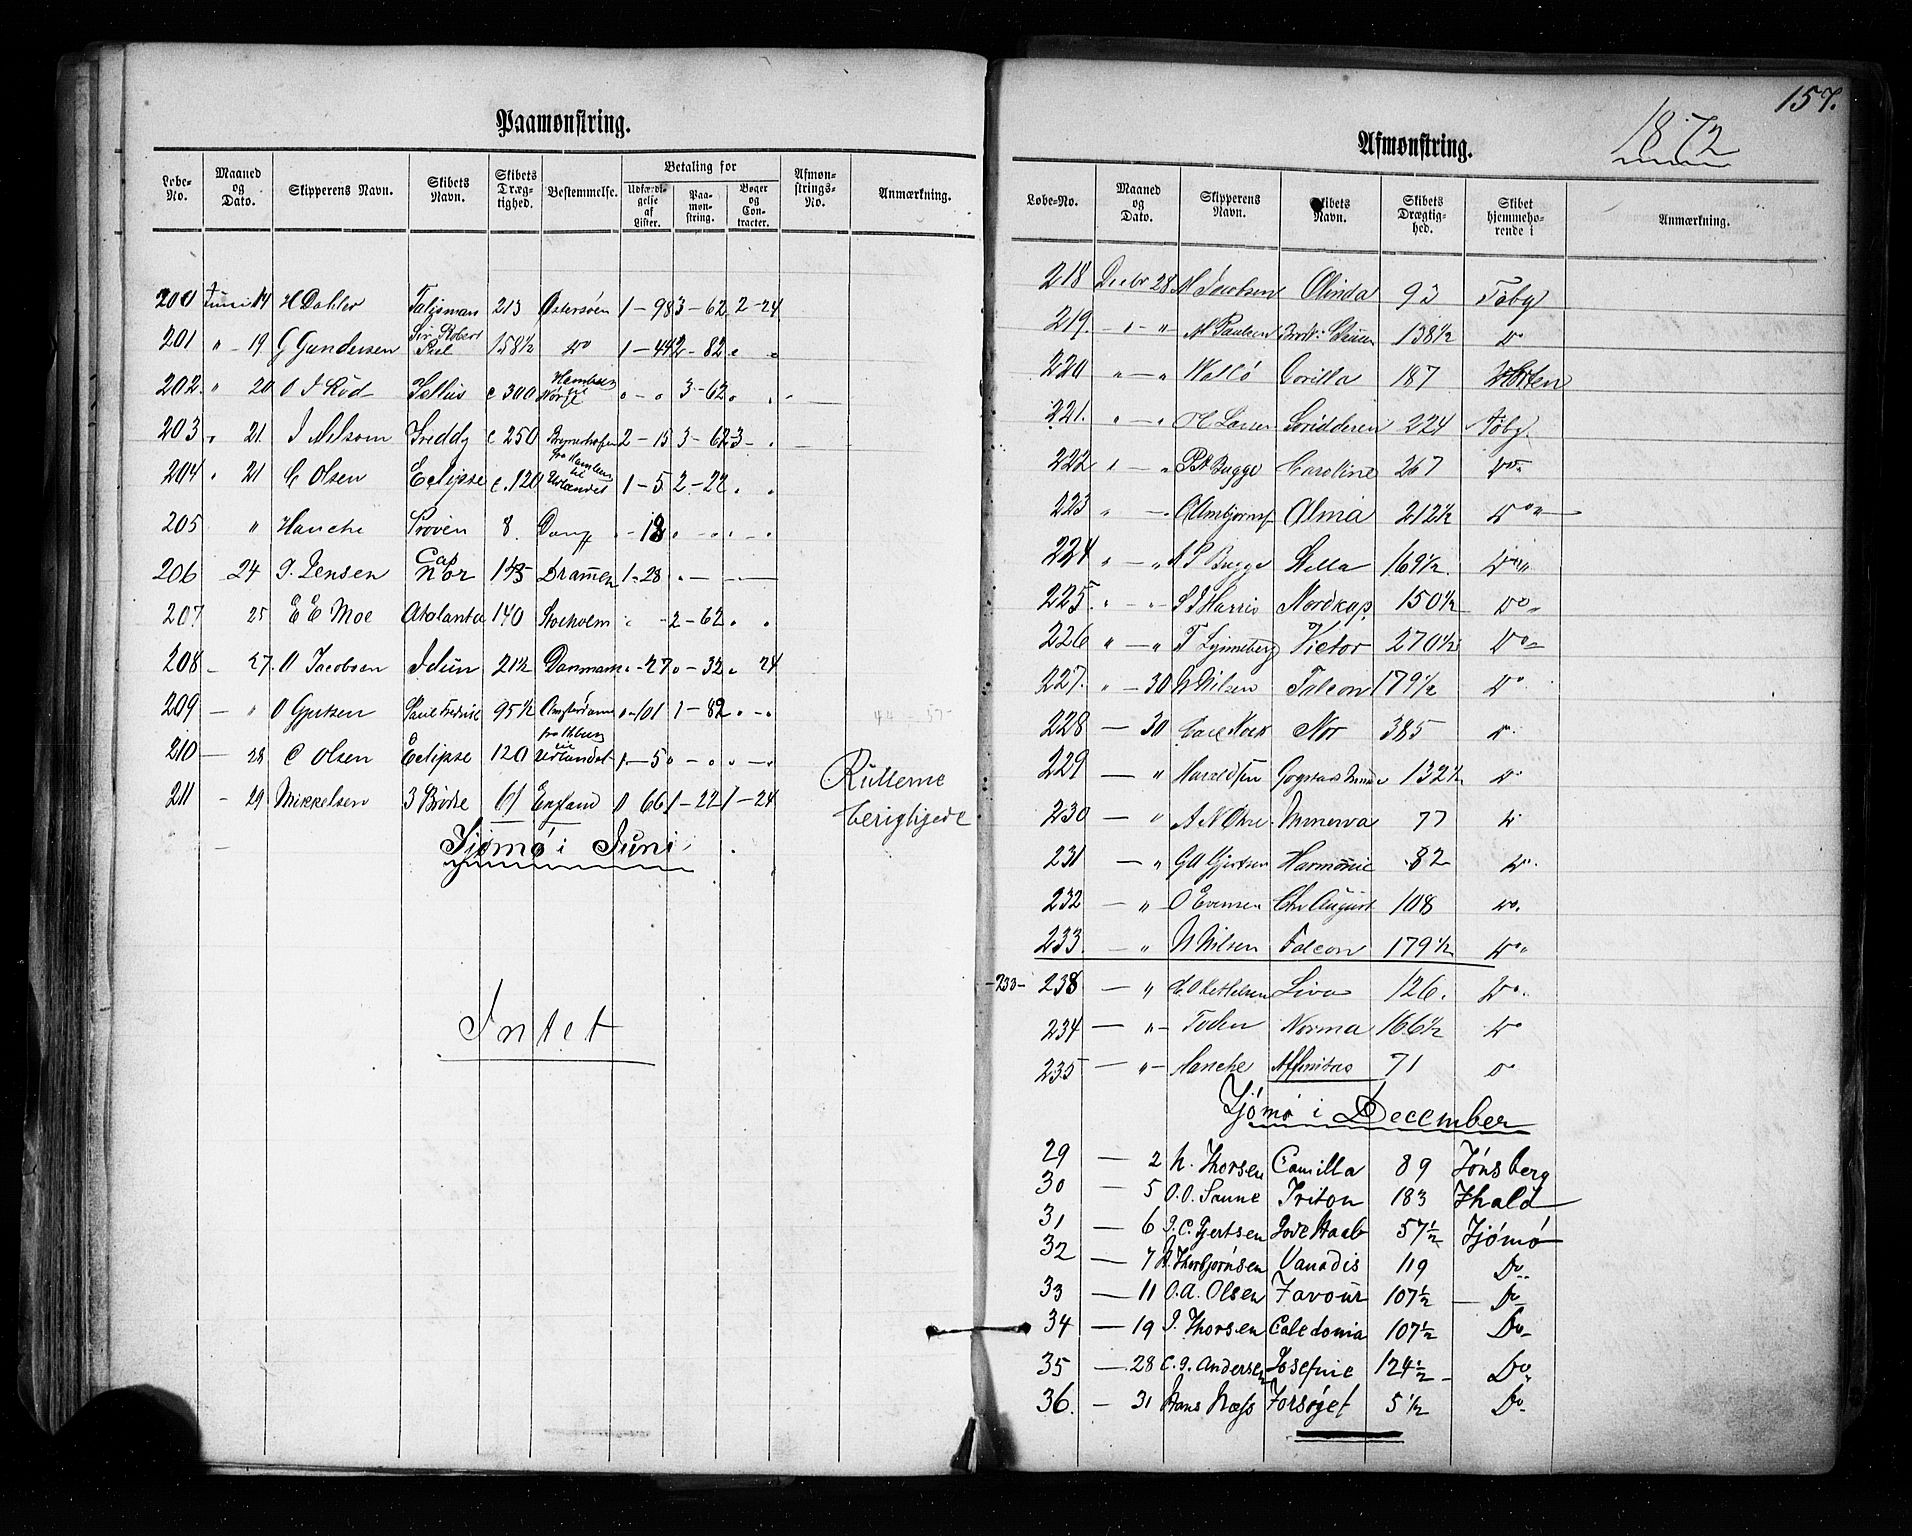 Paamønstring.
Løbe-No. Maaned og Dato. Skipperens Navn. Skibets Navn. Skibets Drægtighed. Bestemmelse. Betaling for Udfærdigelse af Lister. Paamønstring. Bøger og Contracter. Afmønstrings-No. Anmærkning.
200 Juni 14 H Dahler Talisman 213 Østersøen 1-98 3-62 2-24
201 " - 19 G Gundersen Sir Robert Peel 158½ Do 1-44 2-82 " "
202. " 20 O J Röd Tellus c 300 Hamburg til Norge " - " 3-62 " "
203 " 21. J Nilsom Freddy c 250 2-15 3-62 3- "
204 " 21 C Olsen Eclipse c. 120 fra Hamburg til Udlandet 1-5 2-22 " "
205 " Hanche Prøven 8. - 18 " - " " - "
206 - 24 J. Jensen Cap Nor 145 Drammen 1-28 " - - -
207 25 E E Moe Atalanta 140 Stockholm " - 2-62 " "
208 - 27. O Jacobsen Idun 21½ Danmark " -27 " -32 " 24
209 - " O Gjertsen Paul Fredrik 95½ Amsterdam " -101 1-82 " - "
210 - 28 C Olsen Eclipse 120 til Udlandet 1-5 " - " " - "
211 - 29 Mikkelsen 3 Brødre 61 England 0 66 1-22 1-24
Rullerne berigtigede
Tjømø i Juni
Intet
157.
1872
Afmønstring.
Løbe-No. Maaned og Dato. Skipperens Navn. Skibets Navn. Skibets Drægtighed. Skibet hjemmehørende i Anmærkning.
218 Decbr 28 M Jacobsen Olinda 93 Tøbg
219. - " - " M Paulsen 138½ Do
220 " - " Walløe Corilla 187 Horten
221. " - " H Larsen 224 Tøbg.
222 " - " P A Bugge Caroline 267 Do
223 " - " Alma 212½ Do
224 " - " A P Bugge Stella 169½ Do
225. " - " S J Harris Nordkap 150½ Do
226 " - " T Lynneberg Victor 270½ Do
227. " - 30 N Nilsen Falcon 179½ Do
228 - 30 Nor 385 Do
229 - " Haraldsen 132½ Do
230 - " Minerva 77 Do
231 - " G A Gjertsen Harmonie 82 Do
232 - " O Evensen Chr August 108 Do.
233. - " N Nilsen Falcon 179½ Do
-233- 238 - " Liva 126. Do
234 - " - Toden Norma 166½ Do
235 - " - Hanche Affinitas 71 Do
Tjømø i December
29 - 2 N. Thorsen Camilla 89 Tønsberg
30 - 5 O.O. Sanne Triton 183 Fhald
31 - 6 J.C. Gjertsen 57½ Tjømø
32 - 7 A. Thorbjørnsen Vanadis 119 Do
33 - 11 O.A. Olsen Favour 107½ - Do
34 - 19 J. Thorsen Caledonia 107½ Do
35 - 28 C.J. Andersen Josefine 124½ Do
36. - 31 Hans Næss Forsøget 5½ Do